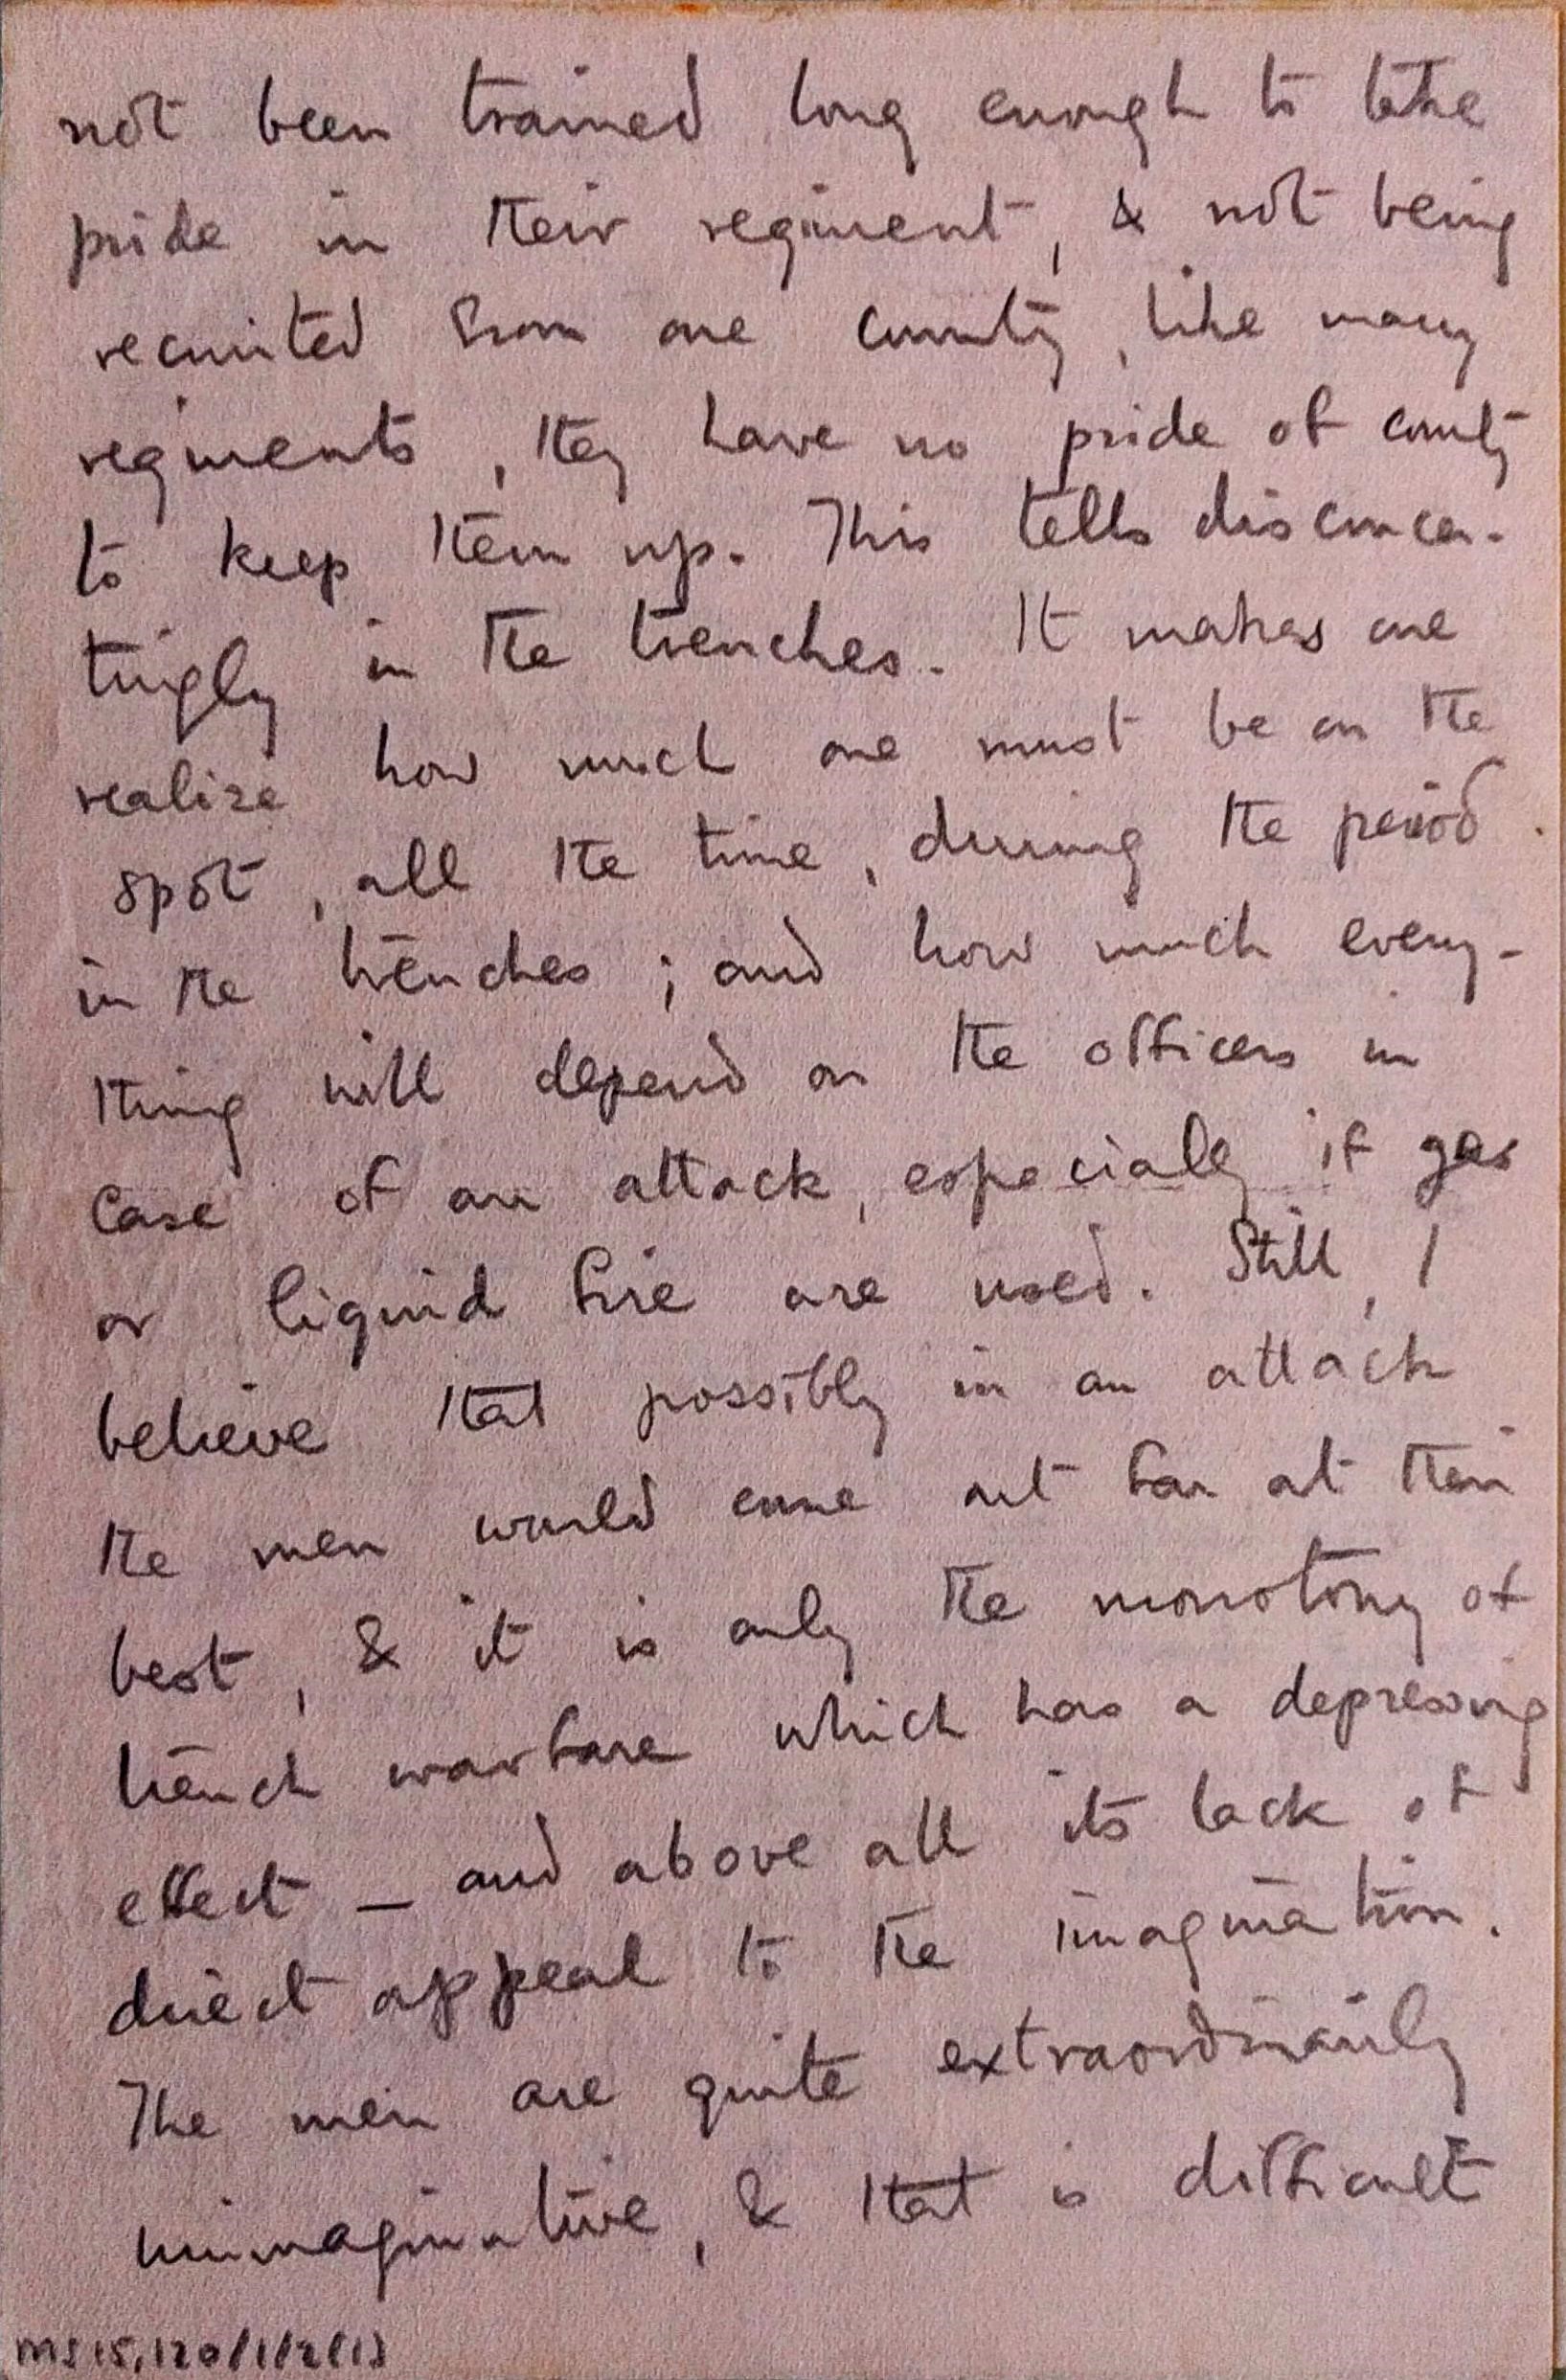 not been trained long enough to take
pride in their regiment, & not being
recruited from one county, like many
regiments, they have no pride of county
to keep them up. This tells disconcer-
tingly in the trenches. It makes one
realise how much one must be on the
spot, all the time, during the period
in the trenches; and how much every-
thing will depend on the officers in
case of an attack, especially if gas
or liquid fire are used. Still, I
believe that possibly in an attack
the men would come out far at their
best, & it is only the monotony of
trench warfare which has a depressing
effect – and above all its lack of
direct appeal to the imagination.
The men are quite extraordinarily
unimaginative, & that is difficult
MS 15,120/1/2(1)